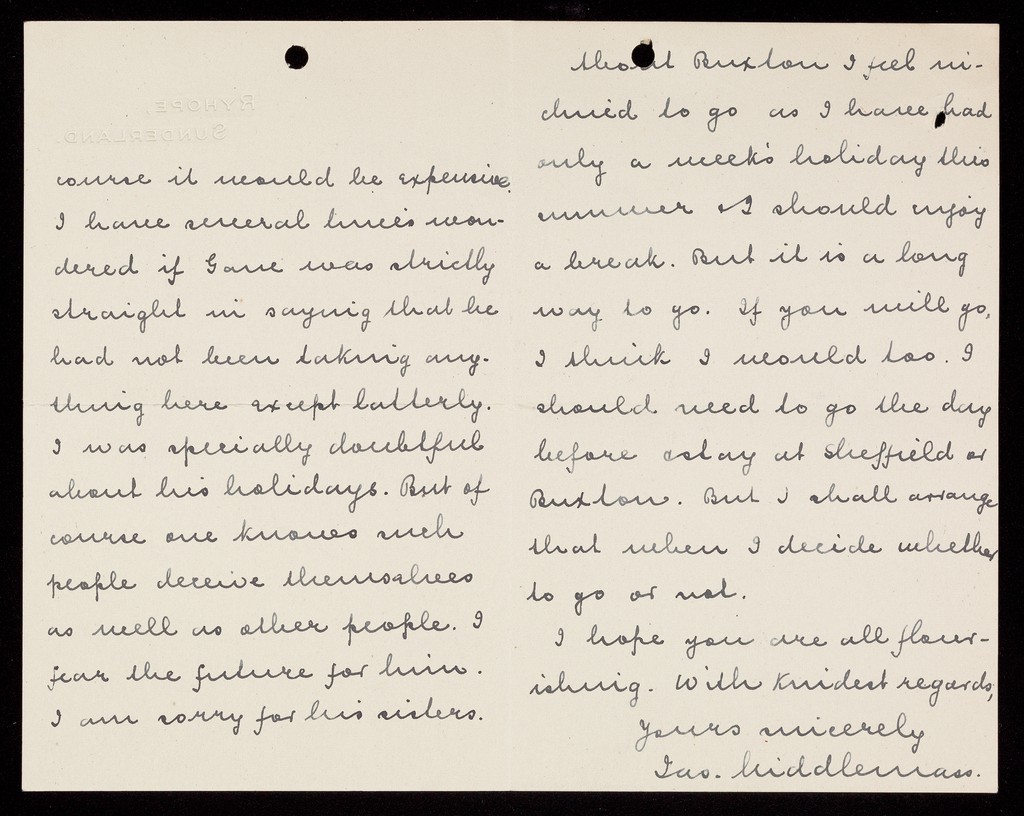 RYHOPE,
SUNDERLAND.
course it would be expensive.
I have several times won-
dered if Gane was strictly
straight in saying that he
had not been taking any-
thing here except latterly.
I was specially doubtful
about his holidays. But of
course one knows such
people deceive themselves
as well as other people. I
fear the future for him.
I am sorry for his sisters.
About Buxton I feel in-
clined to go as I have had
only a week's holiday this
summer & I should enjoy
a break. But it is a long
way to go. If you will go,
I think I would too. I
should need to go the day
before & stay at Sheffield or
Buxton. But I shall arrange
that when I decide whether
to go or not.
I hope you are all flour-
ishing. With kindest regards,
Yours sincerely
Jas. Middlemass.